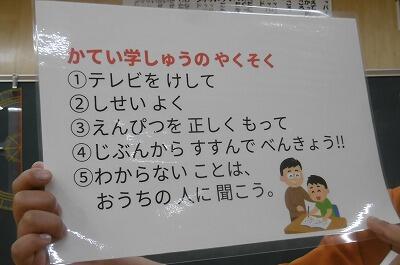 かてい学しゅうの やくそく
①テレビを けして
②しせい よく
③えんぴつを 正しく もって
④じぶんから すすんで べんきょう!!
⑤わからない ことは、
おうちの 人に 聞こう。